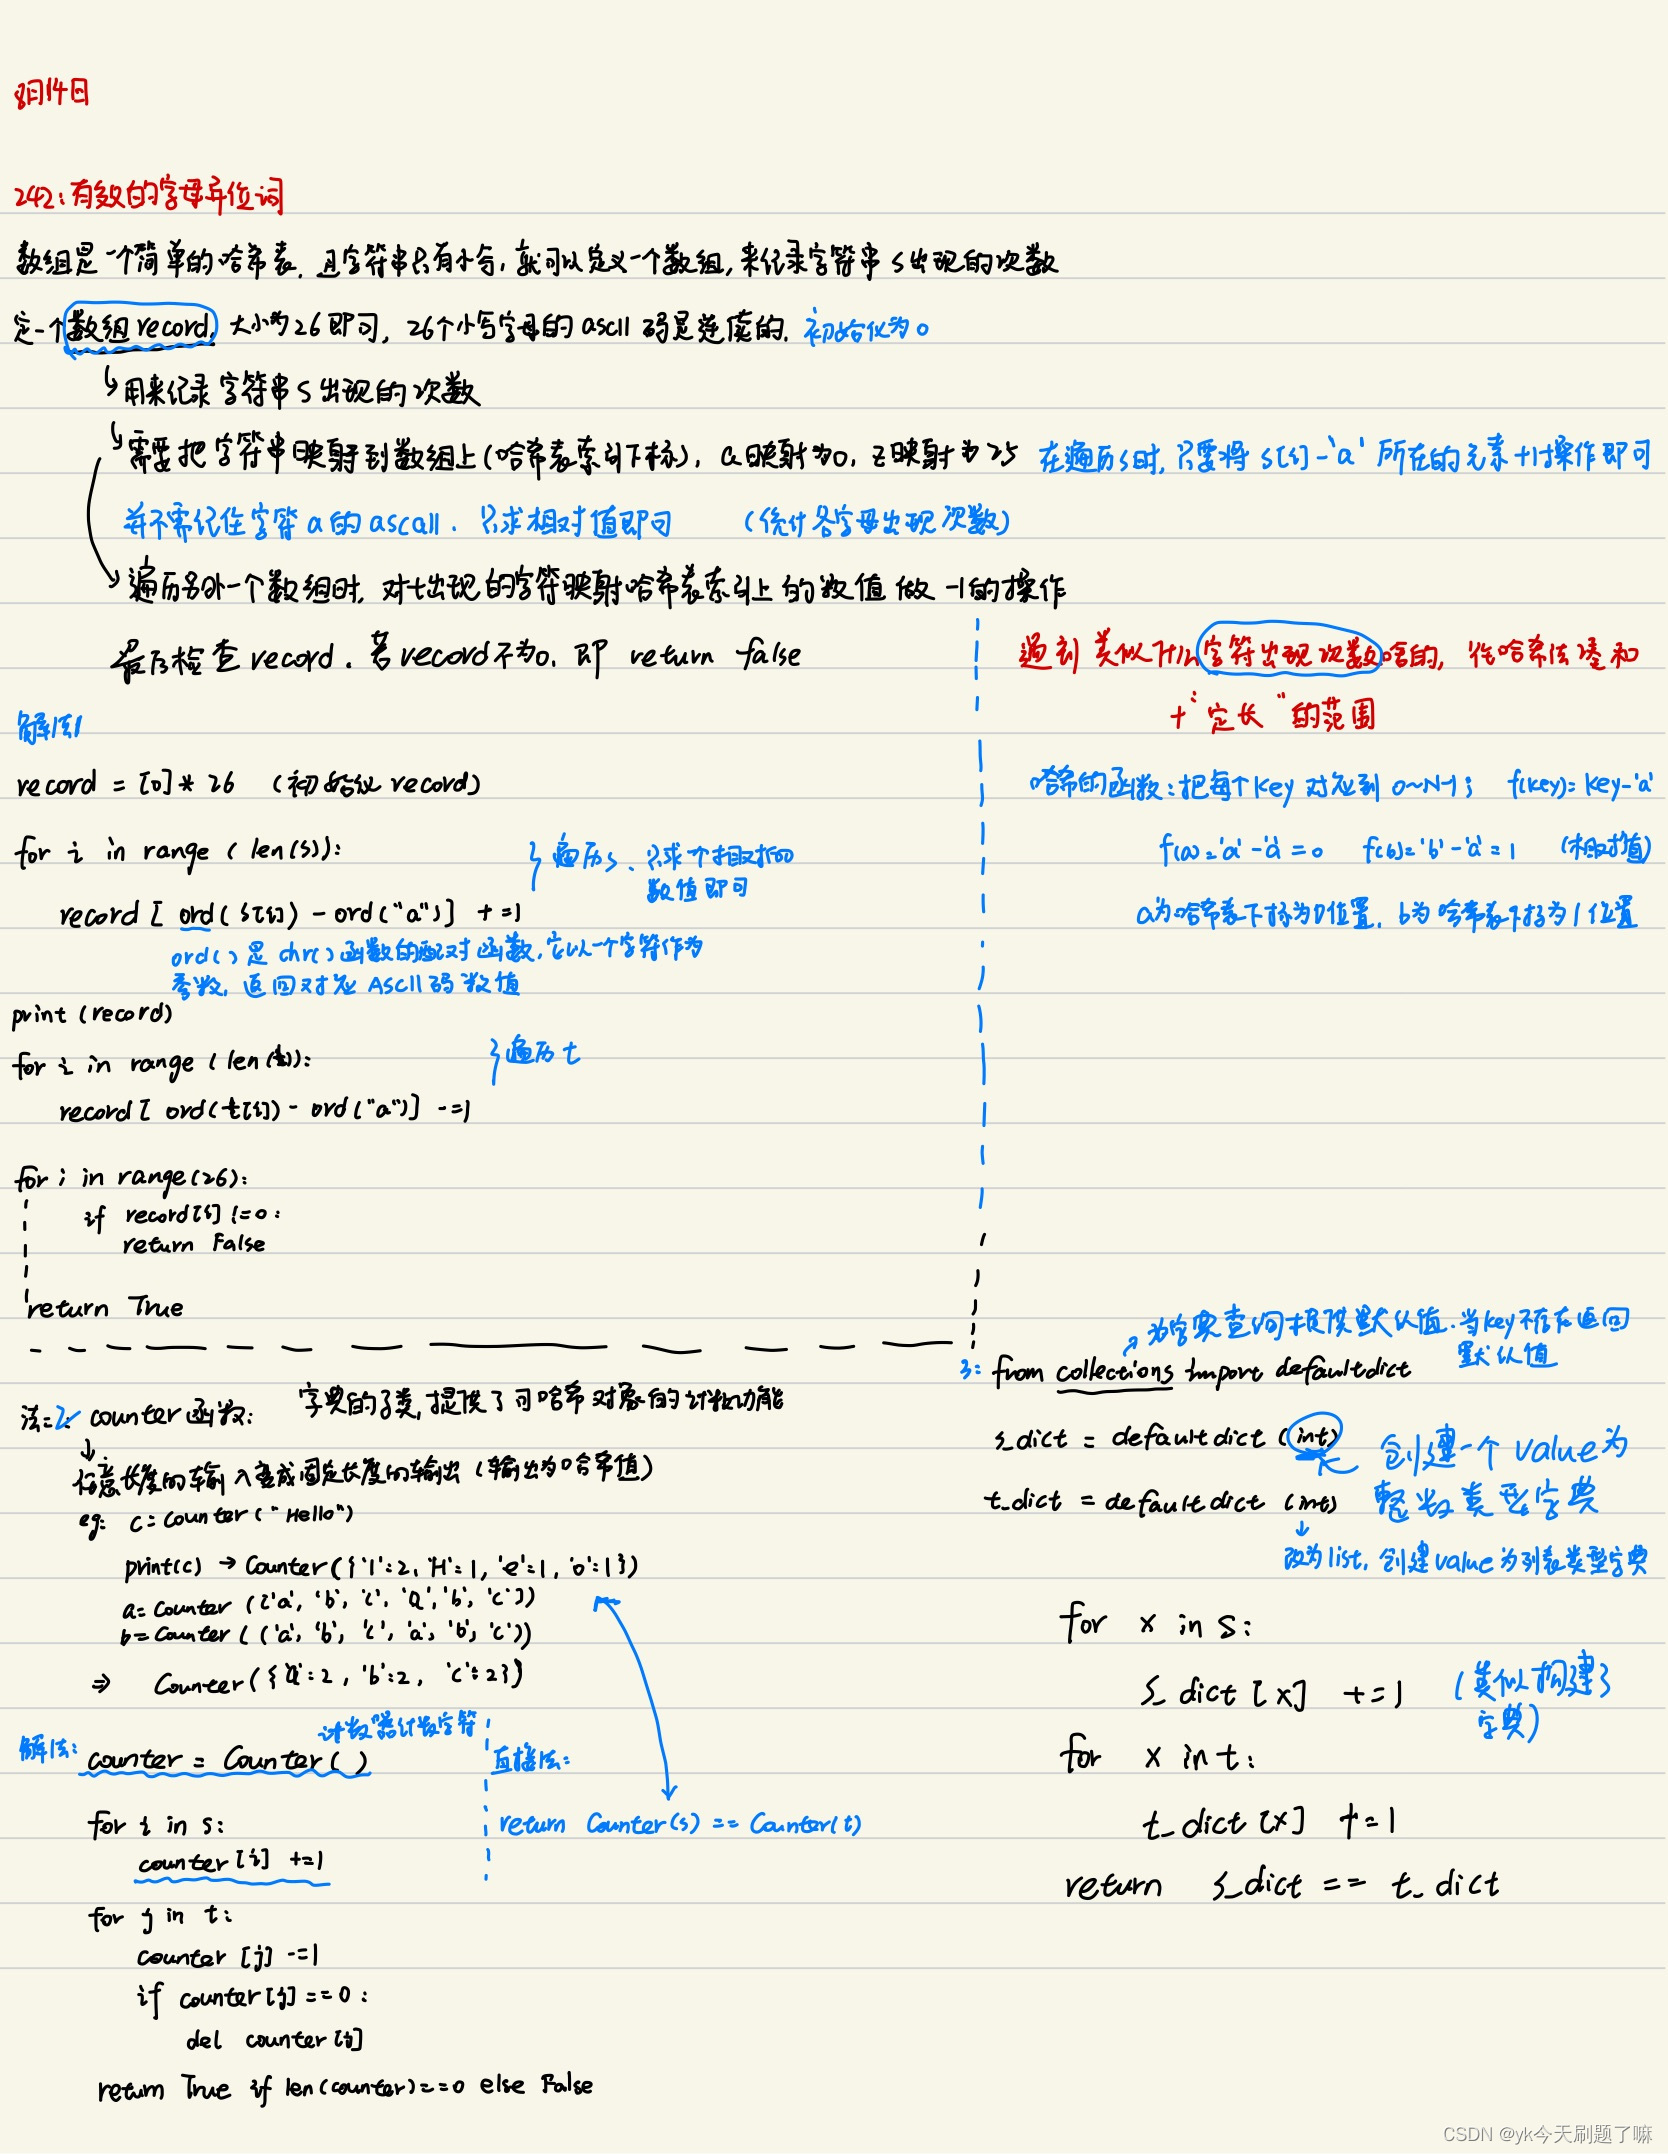 8月14日
242:有效的字母异位词
数组是一个简单的哈希表,且字符串只有小写,就可以定义一个数组,来纪录字符串s出现的次数
定一个数组record,大小为26即可,26个小写字母的ascll码是连续的.初始化为0
用来纪录字符串s出现的次数
需要把字符串映射到数组上(哈希表索引下标),a映射为0,z映射为25 在遍历s时,只要将s[i]-'a'所在的元素+1操作即可
并不需记住字符a的ascall.只求相对值即可 (统计各字母出现次数)
遍历另外一个数组时,对t出现的字符映射哈希表索引上的数值做-1的操作
最后检查record.若record不为0.即return false
遇到类似于某字符出现次数啥的,
+“定长”的范围
哈希的函数:把每个key对应到0~N-1; f(key)=key-'a'
f(a)='a'-'a'=0 f(b)='b'-'a'=1 (相对值)
a为哈希表下标为0位置.b为哈希表下标为1位置
解法1
record = [0]* 26 (初始化record)
for i in range ( len(s)):
遍历s、只求一个相对的
数值即可
record [ ord( s[i]) - ord("a")] +=1
ord()是chr()函数的配对函数,它以一个字符作为
参数,返回对应ASCII码数值
print (record)
for i in range ( len(t)):
遍历t
record[ ord(t[i]) - ord("a")] -=1
for i in range(26):
if record[i] !=0:
return False
return True
法二2: counter函数: 字典的子类,提供了可哈希对象的计数功能
任意长度的输入变成固定长度的输出(输出为哈希值)
eg: c=Counter("Hello")
print(c) → Counter({'l':2,'H':1,'e':1,'o':1})
a=Counter (['a','b','c','a','b','c'])
b=Counter (('a','b','c','a','b','c'))
⇒ Counter({'a':2,'b':2,'c':2})
计数器计数字符
解法: counter = Counter( )
for i in s:
counter[i] +=1
for j in t:
counter [j] -=1
if counter[j]==0:
del counter[j]
return True if len(counter)==0 else False
直接法:
return Counter(s) == Counter(t)
为字典查询提供默认值.当key不存在返回
默认值
3: from collections import defaultdict
s_dict = defaultdict (int) 创建一个value为
t_dict = defaultdict (int) 整数类型字典
改为list,创建value为列表类型字典
for x in s:
s_dict [x] +=1 (类似构建了
字典)
for x in t:
t_dict [x] +=1
return s_dict == t_dict
CSDN @yk今天刷题了嘛